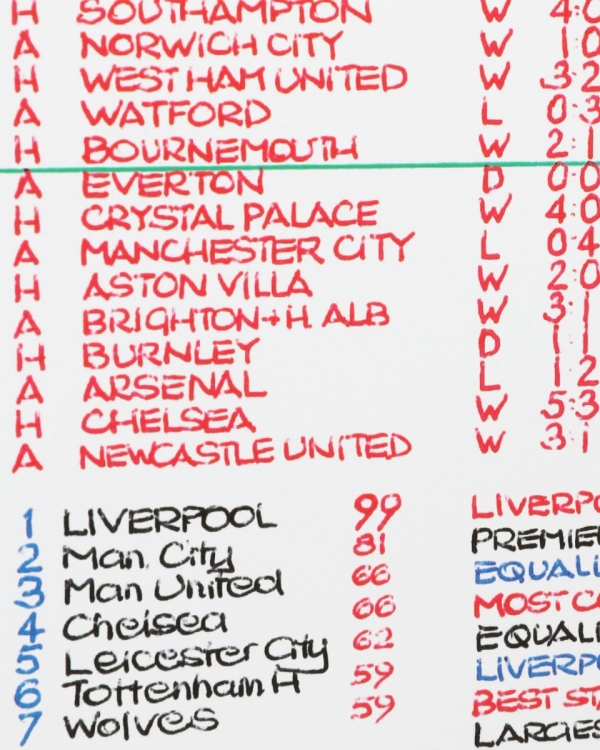 H SOUTHAMPTON W 4:0
A NORWICH CITY W 1 0
H WEST HAM UNITED W 3:2
A WATFORD L 0:3
H BOURNEMOUTH W 2:1
A EVERTON D 0:0
H CRYSTAL PALACE W 4:0
A MANCHESTER CITY L 0:4
H ASTON VILLA W 2:0
A BRIGHTON+H. ALB W 3:1
H BURNLEY D 1:1
A ARSENAL L 1:2
H CHELSEA W 5:3
A NEWCASTLE UNITED W 3:1
1 LIVERPOOL 99
2 Man. City 81
3 Man United 66
4 Chelsea 66
5 Leicester City 62
6 Tottenham H 59
7 Wolves 59
LIVERPO
PREMIER
EQUALI
MOST
EQUALI
LIVERPO
BEST
LARGES